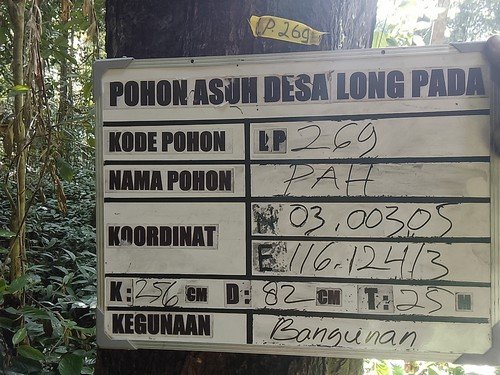 P. 269
POHON ASUH DESA LONG PADA
KODE POHON LP 269
NAMA POHON PAH
KOORDINAT N 03,00305
E 116.12413
K: 256 CM D: 82 CM T: 25 M
KEGUNAAN Bangunan